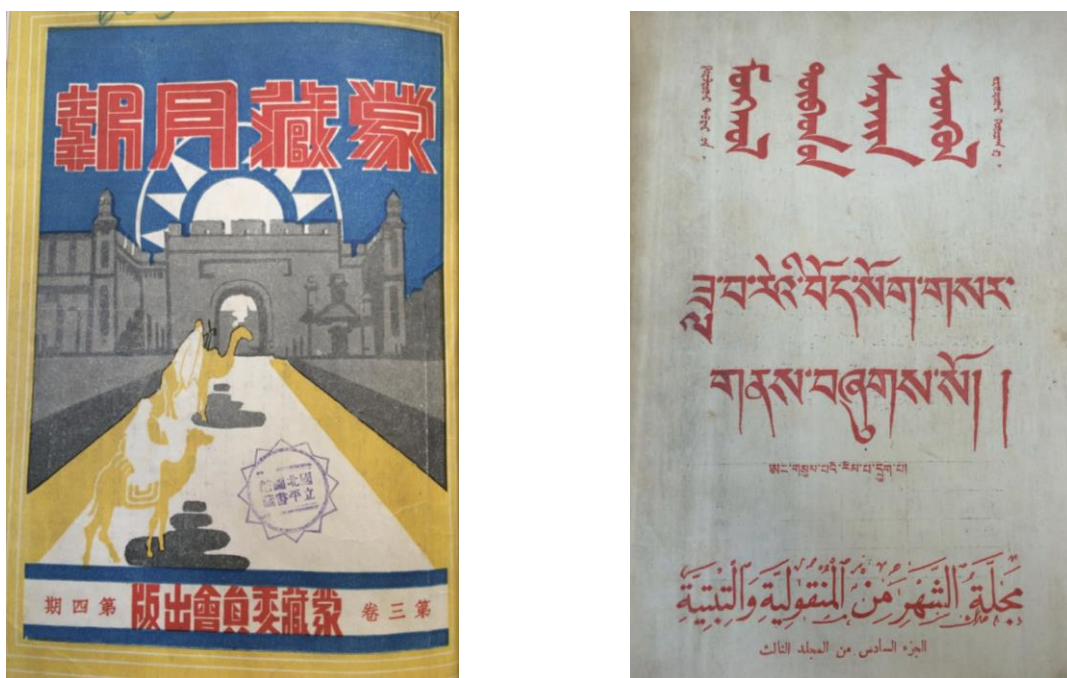 蒙藏月報
國立北平圖書館藏
第三卷 蒙藏委員會出版 第四期
ཟླ་བ་རེའི་བོད་སོག་གསར་
གནས་བཞུགས་སོ། །
ཨང་གསུམ་པའི་རིམ་པ་དྲུག་པ།
مَجَلَّةُ الشَّهْرِ مِنَ الْمُنْقُولِيَّةِ وَالتِّبْتِيَّةِ
الجزء السادس من المجلد الثالث